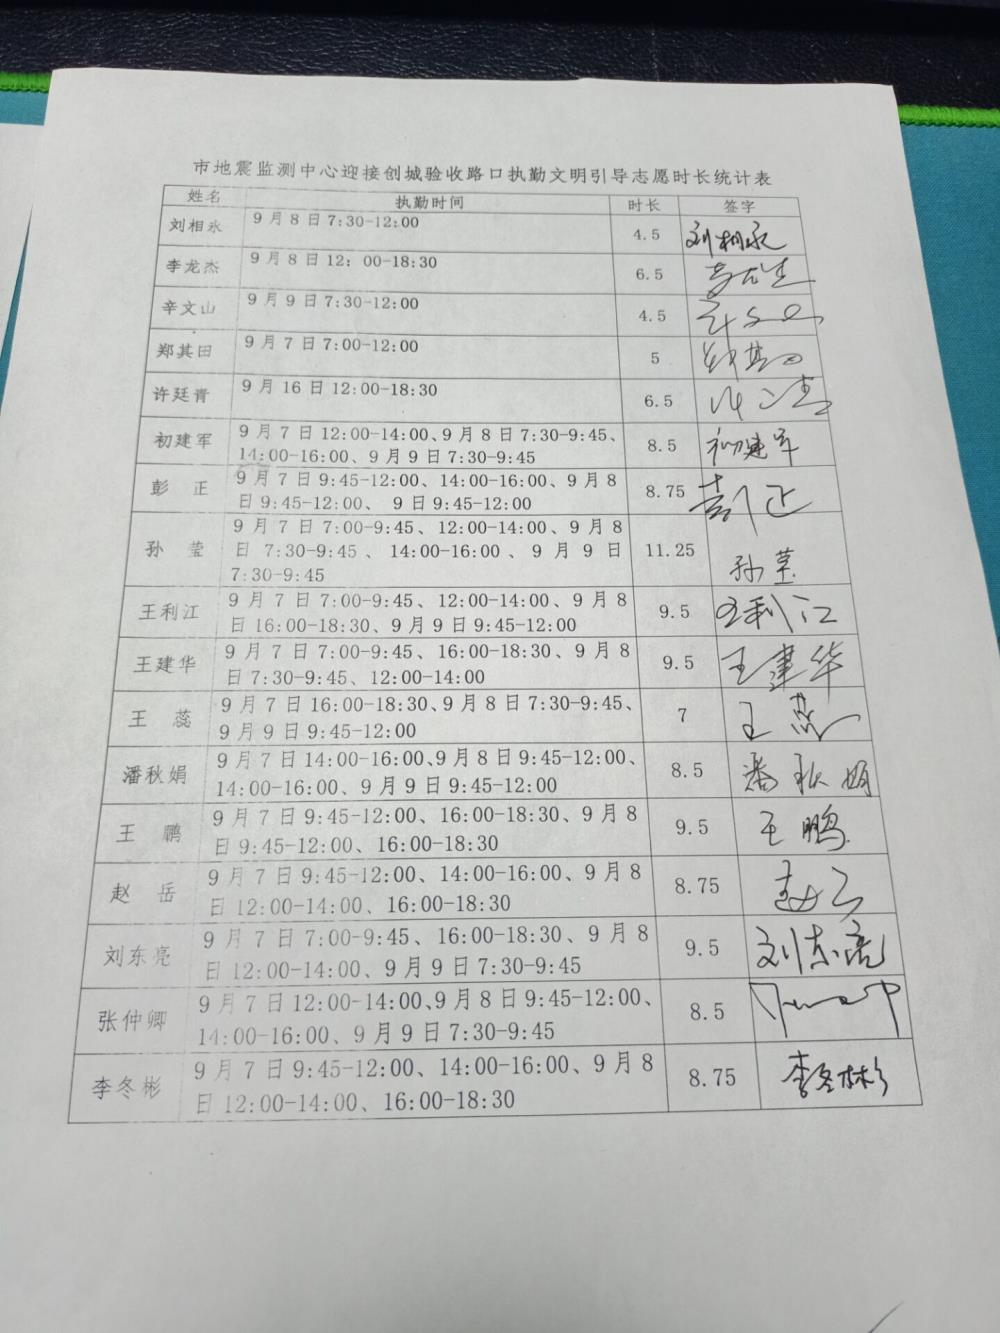 市地震监测中心迎接创城验收路口执勤文明引导志愿时长统计表
姓名 执勤时间 时长 签字
刘相永 9月8日7:30-12:00 4.5 刘相永
李龙杰 9月8日12: 00-18:30 6.5 李龙杰
辛文山 9月9日7:30-12:00 4.5
郑其田 9月7日7:00-12:00 5 郑其田
许廷青 9月16日12:00-18:30 6.5
初建军 9月7日12:00-14:00、9月8日7:30-9:45、
14:00-16:00、9月9日7:30-9:45 8.5 初建军
彭 正 9月7日9:45-12:00、14:00-16:00、9月8
日9:45-12:00、 9日9:45-12:00 8.75 彭正
孙 莹 9月7日7:00-9:45、12:00-14:00、9月8
日 7:30-9:45 、 14:00-16:00 、 9 月 9 日
7:30-9:45 11.25 孙莹
王利江 9月7日7:00-9:45、12:00-14:00、9月8
日16:00-18:30、9月9日9:45-12:00 9.5 王利江
王建华 9月7日7:00-9:45、16:00-18:30、9月8
日7:30-9:45、12:00-14:00 9.5 王建华
王 蕊 9月7日16:00-18:30、9月8日7:30-9:45、
9月9日9:45-12:00 7 王蕊
潘秋娟 9月7日14:00-16:00、9月8日9:45-12:00、
14:00-16:00、9月9日9:45-12:00 8.5 潘秋娟
王 鹏 9月7日9:45-12:00、16:00-18:30、9月8
日9:45-12:00、16:00-18:30 9.5 王鹏
赵 岳 9月7日9:45-12:00、14:00-16:00、9月8
日12:00-14:00、16:00-18:30 8.75 赵岳
刘东亮 9月7日7:00-9:45、16:00-18:30、9月8
日12:00-14:00、9月9日7:30-9:45 9.5 刘东亮
张仲卿 9月7日12:00-14:00、9月8日9:45-12:00、
14:00-16:00、9月9日7:30-9:45 8.5
李冬彬 9月7日9:45-12:00、14:00-16:00、9月8
日12:00-14:00、16:00-18:30 8.75 李冬彬